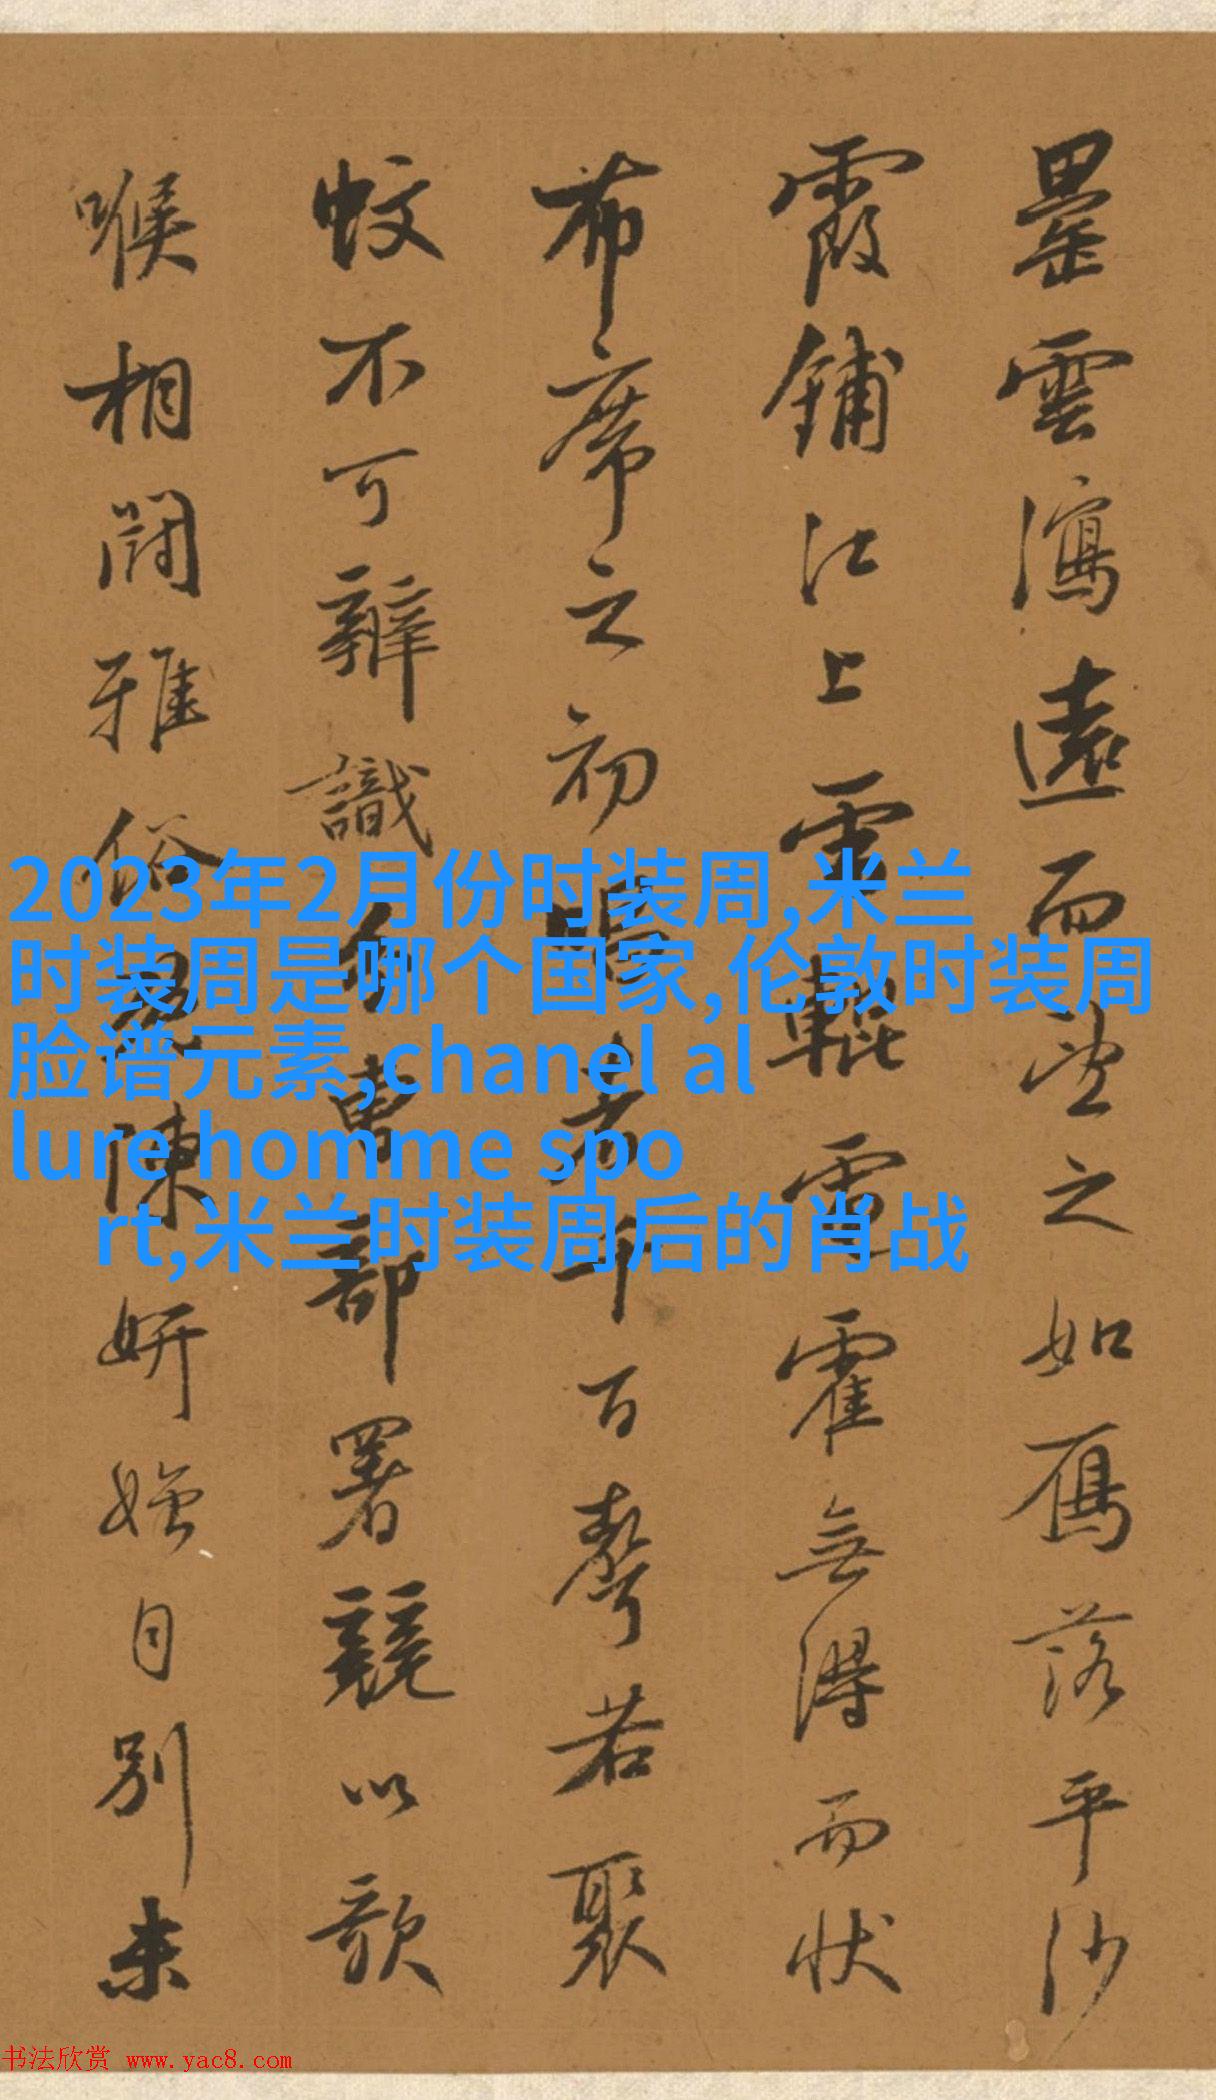 罍雲瀉遠而望之如鴈落平沙
霞鋪江上雷輥電霍無得而狀
布席之初唱者千百聲若聚
蚊不可辨識分曹部署競以歌
喉相闘雅俗既陳妍媸自別未
2023年2月份时装周,米兰
时装周是哪个国家,伦敦时装周
脸谱元素,chanel al
lure homme spo
rt,米兰时装周后的肖战
书法欣赏 www.yac8.com